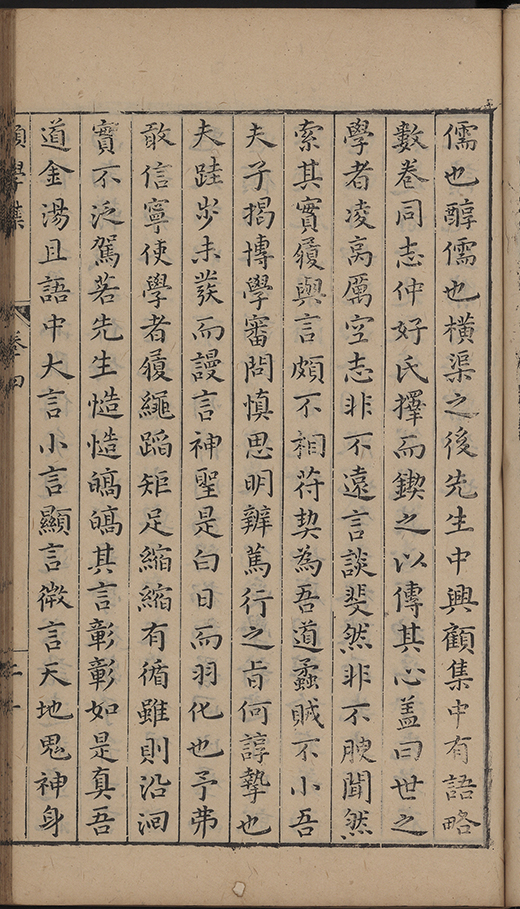 儒也醇儒也橫渠之後先生中興顧集中有語略
數卷同志仲好氏擇而鍥之以傳其心盖曰世之
學者凌高厲空志非不遠言談斐然非不腴聞然
索其實履與言頗不相符契為吾道蟊賊不小吾
夫子揭博學審問慎思明辨篤行之旨何諄摯也
夫跬步未發而謾言神聖是白日而羽化也予弗
敢信寧使學者履繩蹈矩足縮縮有循雖則沿洄
實不泛駕若先生慥慥皜皜其言彰彰如是真吾
道金湯且語中大言小言顯言微言天地鬼神身
學集 卷四